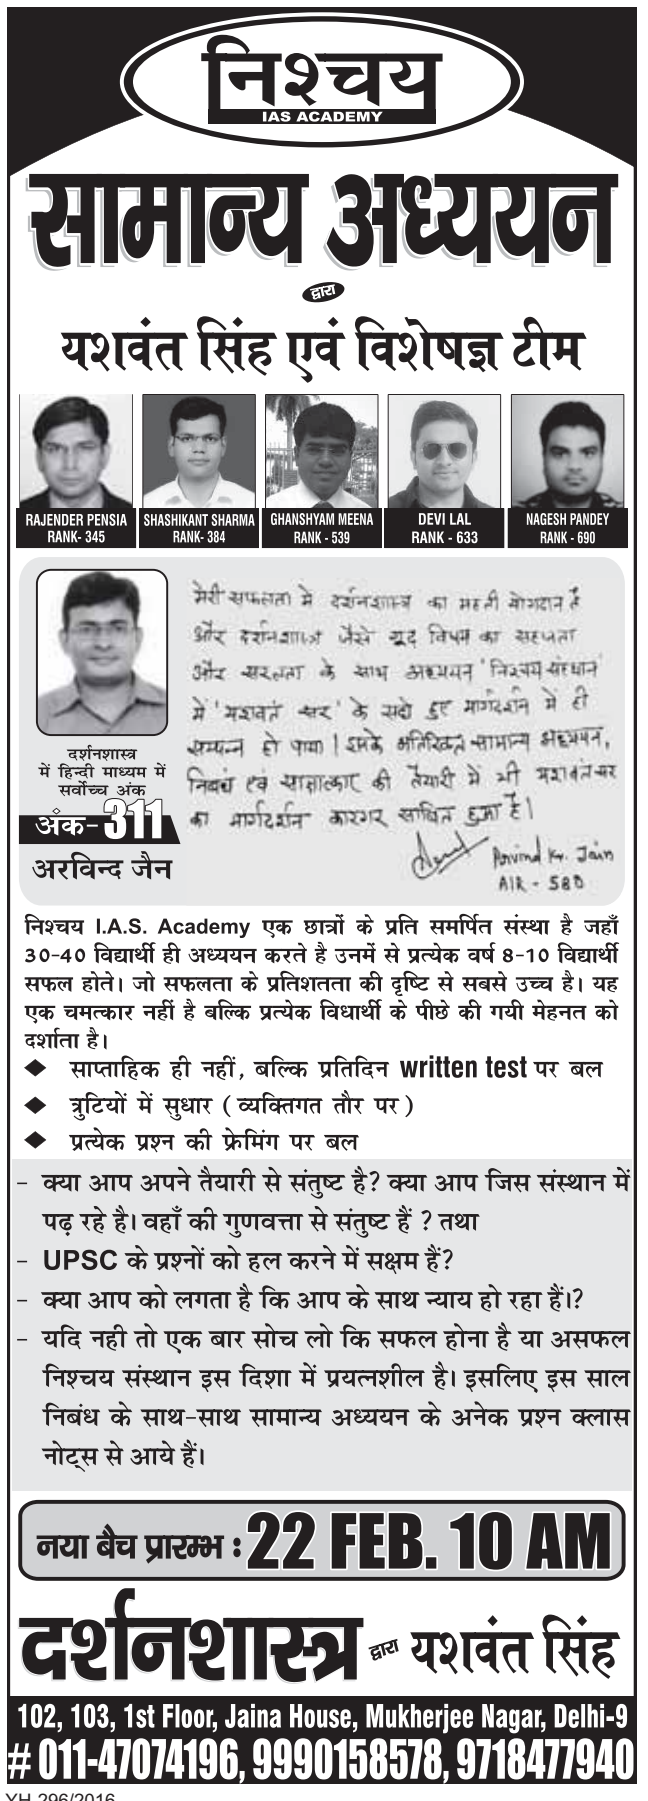 निश्चय
IAS ACADEMY
सामान्य अध्ययन
द्वारा
यशवंत सिंह एवं विशेषज्ञ टीम
RAJENDER PENSIA
RANK- 345
SHASHIKANT SHARMA
RANK- 384
GHANSHYAM MEENA
RANK - 539
DEVI LAL
RANK - 633
NAGESH PANDEY
RANK - 690
मेरी सफलता में दर्शनशास्त्र का महती योगदान है
और दर्शनशास्त्र जैसे गूढ विषय का सहजता
और सरलता के साथ अध्ययन 'निश्चय संस्थान'
में 'यशवंत सर' के सधे हुए मार्गदर्शन में ही
सम्पन्न हो पाया। इसके अतिरिक्त सामान्य अध्ययन,
निबंध एवं साक्षात्कार की तैयारी में भी यशवंत सर
का मार्गदर्शन कारगर साबित हुआ है।
Arvind Kr. Jain
AIR - 580
दर्शनशास्त्र
में हिन्दी माध्यम में
सर्वोच्च अंक
अंक-311
अरविन्द जैन
निश्चय I.A.S. Academy एक छात्रों के प्रति समर्पित संस्था है जहाँ
30-40 विद्यार्थी ही अध्ययन करते है उनमें से प्रत्येक वर्ष 8-10 विद्यार्थी
सफल होते। जो सफलता के प्रतिशतता की दृष्टि से सबसे उच्च है। यह
एक चमत्कार नहीं है बल्कि प्रत्येक विधार्थी के पीछे की गयी मेहनत को
दर्शाता है।
◆ साप्ताहिक ही नहीं, बल्कि प्रतिदिन written test पर बल
◆ त्रुटियों में सुधार ( व्यक्तिगत तौर पर )
◆ प्रत्येक प्रश्न की फ्रेमिंग पर बल
- क्या आप अपने तैयारी से संतुष्ट है? क्या आप जिस संस्थान में
पढ़ रहे है। वहाँ की गुणवत्ता से संतुष्ट हैं ? तथा
- UPSC के प्रश्नों को हल करने में सक्षम हैं?
- क्या आप को लगता है कि आप के साथ न्याय हो रहा हैं।?
- यदि नही तो एक बार सोच लो कि सफल होना है या असफल
निश्चय संस्थान इस दिशा में प्रयत्नशील है। इसलिए इस साल
निबंध के साथ-साथ सामान्य अध्ययन के अनेक प्रश्न क्लास
नोट्स से आये हैं।
नया बैच प्रारम्भ : 22 FEB. 10 AM
दर्शनशास्त्र द्वारा यशवंत सिंह
102, 103, 1st Floor, Jaina House, Mukherjee Nagar, Delhi-9
# 011-47074196, 9990158578, 9718477940
YH-296/2016